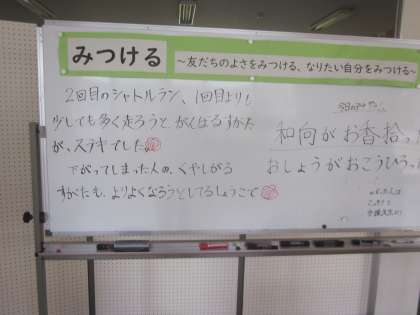 みつける
～友だちのよさをみつける、なりたい自分をみつける～
2回目のシャトルラン、1回目よりも
少しでも多く走ろうと、がんばるすがた
が、ステキでした
下がってしまった人の、くやしがる
すがたも、よりよくなろうとしてるしょうこで
和尚がお香拾っ
おしょうがおこうひろっ